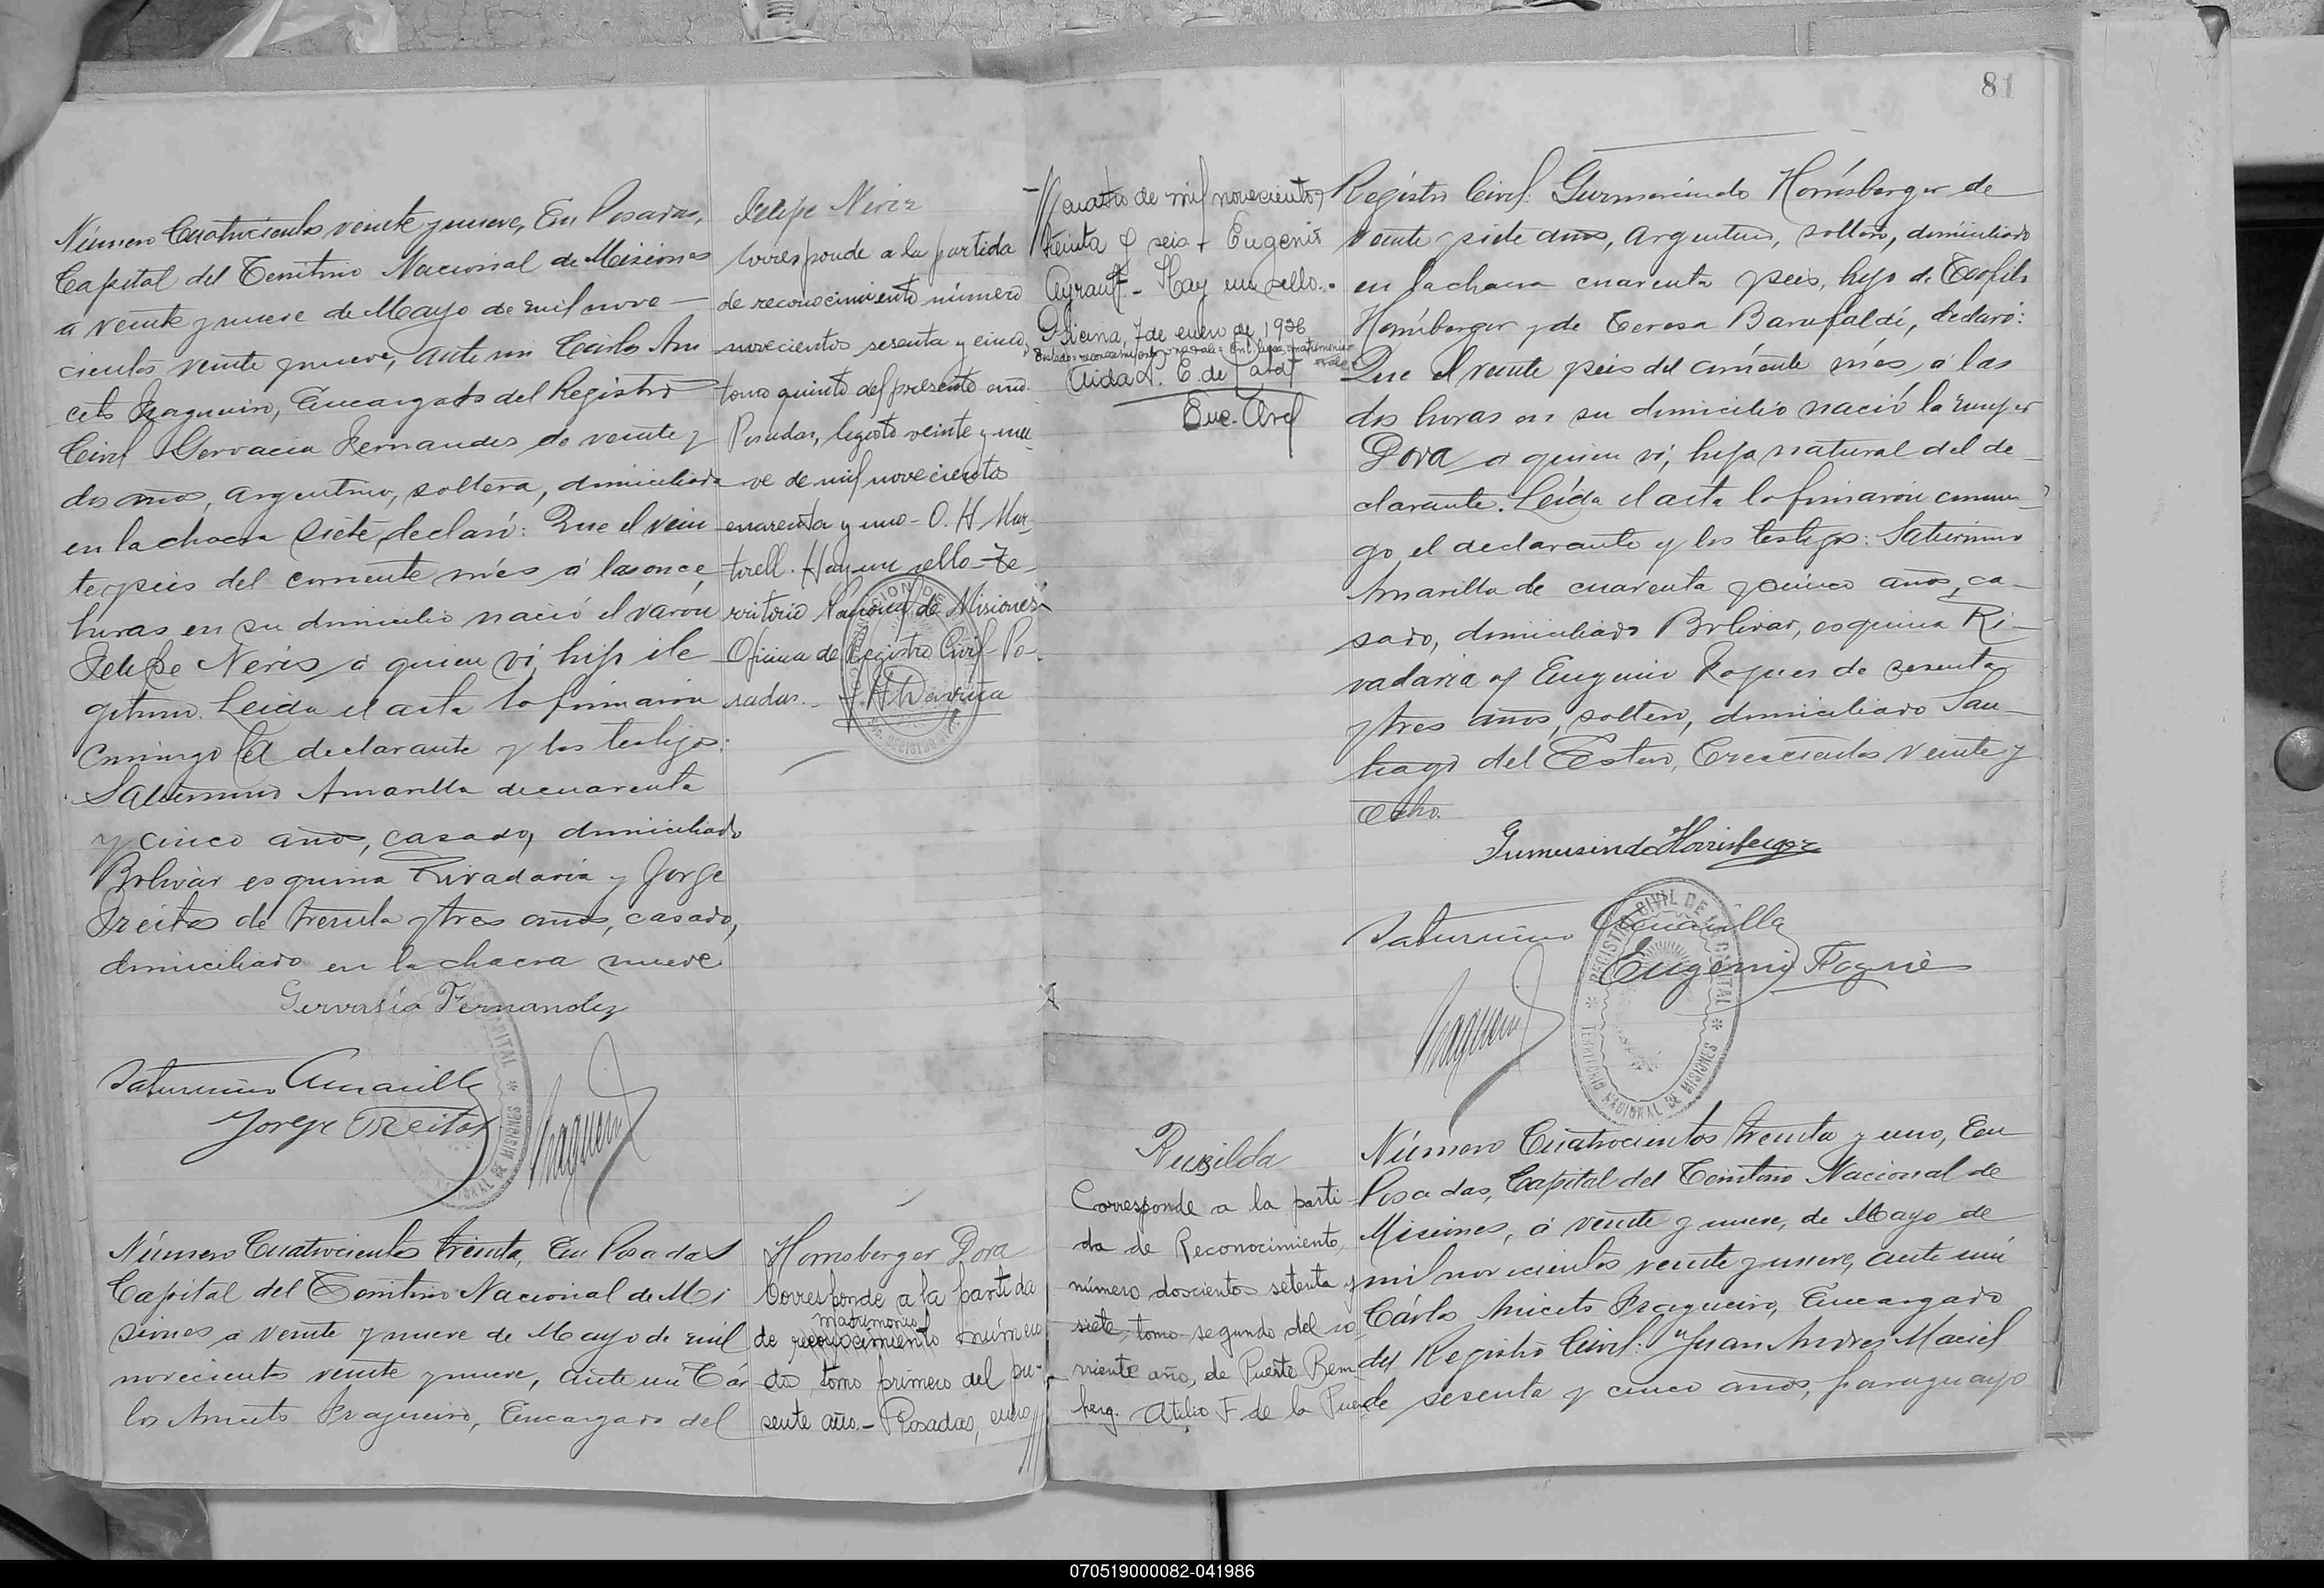 Número Cuatrocientos veinte y nueve, En Posadas,
Capital del Territorio Nacional de Misiones
a veinte y nueve de Mayo de mil nove
cientos veinte y nueve, ante mi Carlos Ani
ceto Fragueiro, Encargado del Registro
Civil Gervacia Fernandes de veinte y
dos años, argentina, soltera, domiciliada
en la chacra siete, declaró: Que el vein
te y seis del corriente més á las once
horas en su domicilio nació el varón
Felipe Neris á quien ví, hijo ile
gítimo. Leida el acta la firmaron
conmigo la declarante y los testigos:
Saturnino Amarilla de cuarenta
y cinco años, casado, domiciliado
Bolivar esquina Rivadavia y Jorge
Freitas de treinta y tres años, casado,
domiciliado en la chacra nueve
Gervasia Fernandez
Saturnino Amarilla
Jorge Freitas
Felipe Neris
Corresponde a la partida
de reconocimiento número
novecientos sesenta y cinco,
tomo quinto del presente año.
Posadas, Agosto veinte y nue
ve de mil novecientos
cuarenta y uno - O. H. Mar-
tirell. Hay un sello - Te-
rritorio Nacional de Misiones
Oficina de Registro Civil - Po-
sadas.
Número Cuatrocientos treinta, En Posadas
Capital del Territorio Nacional de Mi
siones a veinte y nueve de Mayo de mil
novecientos veinte y nueve, ante mi Cár
los Aniceto Fragueiro, Encargado del
Hornsberger Dora
Corresponde a la partida
matrimonio
de reconocimiento número
dos, tomo primero del pre-
sente año. - Posadas, enero
81
cuatro de mil novecientos
treinta y seis - Eugenio
Ayrault - Hay un sello. -
Oficina, 7 de enero de 1936
Aida A. E. de
Enc. Arch
Registro Civil: Gumersindo Hornsberger de
veinte y siete años, argentino, soltero, domiciliado
en la chacra cuarenta y seis, hijo de Teofilo
Hornsberger y de Teresa Barufaldi, declaró:
Que el veinte y seis del corriente més, á las
dos horas en su domicilio nació la mujer
Dora á quien ví, hija natural del de
clarante. Leída el acta la firmaron conmi
go, el declarante y los testigos: Saturnino
Amarilla de cuarenta y cinco años, ca
sado, domiciliado Bolivar, esquina Ri
vadavia y Eugenio Fogues de sesenta
y tres años, soltero, domiciliado San
tiago del Estero, trescientos veinte y
ocho.
Gumersindo Hornisberger
Saturnino Amarilla
Eugenio Fogues
REGISTRO CIVIL DE LA CAPITAL
TERRITORIO NACIONAL DE MISIONES
Rusilda
Corresponde a la parti
da de Reconocimiento,
número doscientos setenta y
siete, tomo segundo del co
rriente año, de Puerto Bem
berg. Atilio F. de la Puen
Número Cuatrocientos treinta y uno, En
Posadas, Capital del Territorio Nacional de
Misiones, á veinte y nueve, de Mayo de
mil novecientos veinte y nueve, ante mi
Cárlos Aniceto Fragueiro, Encargado
del Registro Civil: Juan Andres Maciel
de sesenta y cinco años, paraguayo
070519000082-041986